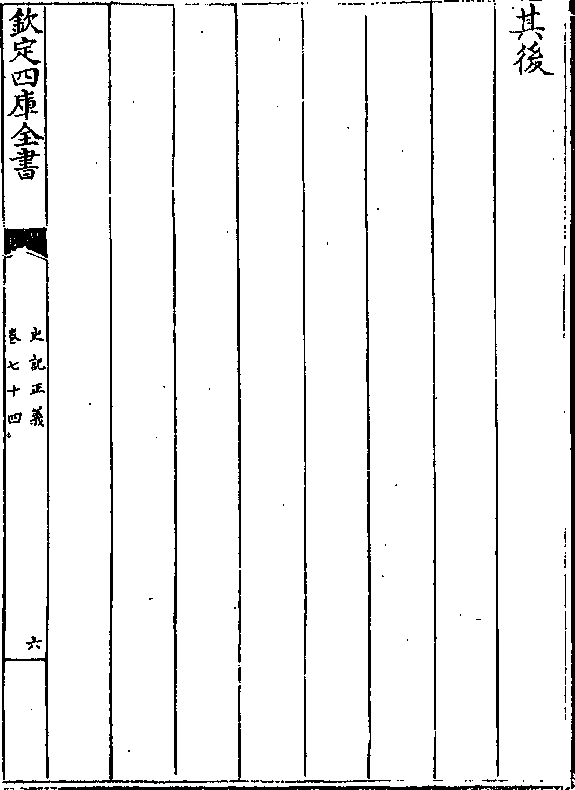 其後
欽定四庫全書
史記正義
卷七十四
六